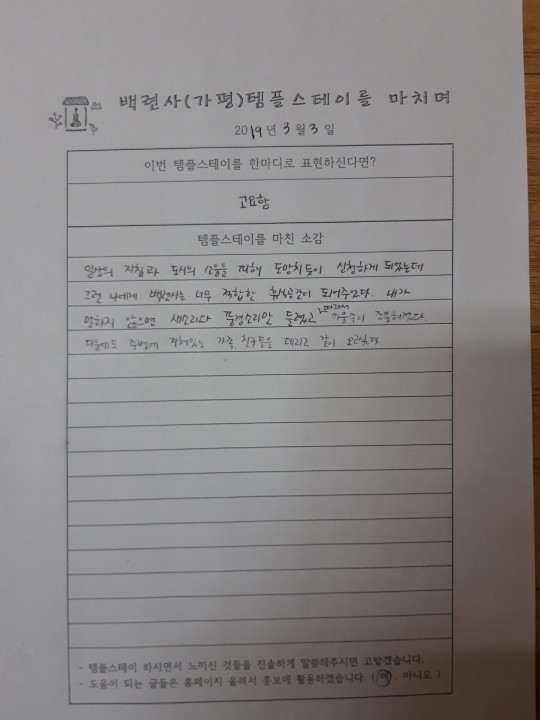 백련사(가평)템플스테이를 마치며
2019년 3월 3일
이번 템플스테이를 한마디로 표현하신다면?
고요함
템플스테이를 마친 소감
일상의 지침과 도시의 소음을 피해 도망치듯이 신청하게 되었는데
그런 나에게 백련사는 너무 적합한 휴식공간이 되어주었다. 내가
말하지 않으면 새소리와 풍경소리만 들렸고 따라서 마음속이 조용해졌다.
다음에도 주변에 지쳐있는 가족, 친구들을 데리고 같이 오고싶다.
- 템플스테이 하시면서 느끼신 것들을 진솔하게 말씀해주시면 고맙겠습니다.
- 도움이 되는 글들은 홈페이지 올려서 홍보에 활용하겠습니다. ( 예. 아니요 )